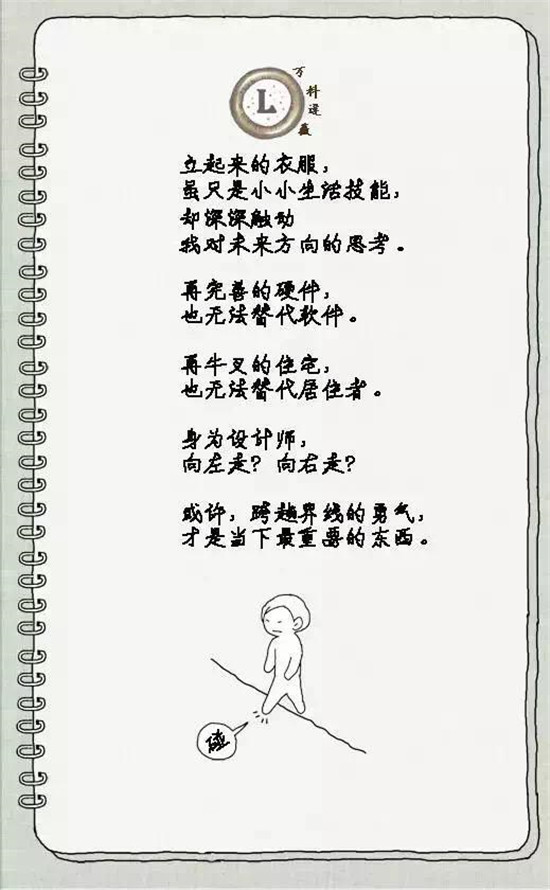 L
万科逢赢
立起来的衣服，
虽只是小小生活技能，
却深深触动
我对未来方向的思考。
再完善的硬件，
也无法替代软件。
再牛叉的住宅，
也无法替代居住者。
身为设计师，
向左走？向右走？
或许，跨越界线的勇气，
才是当下最重要的东西。
碰